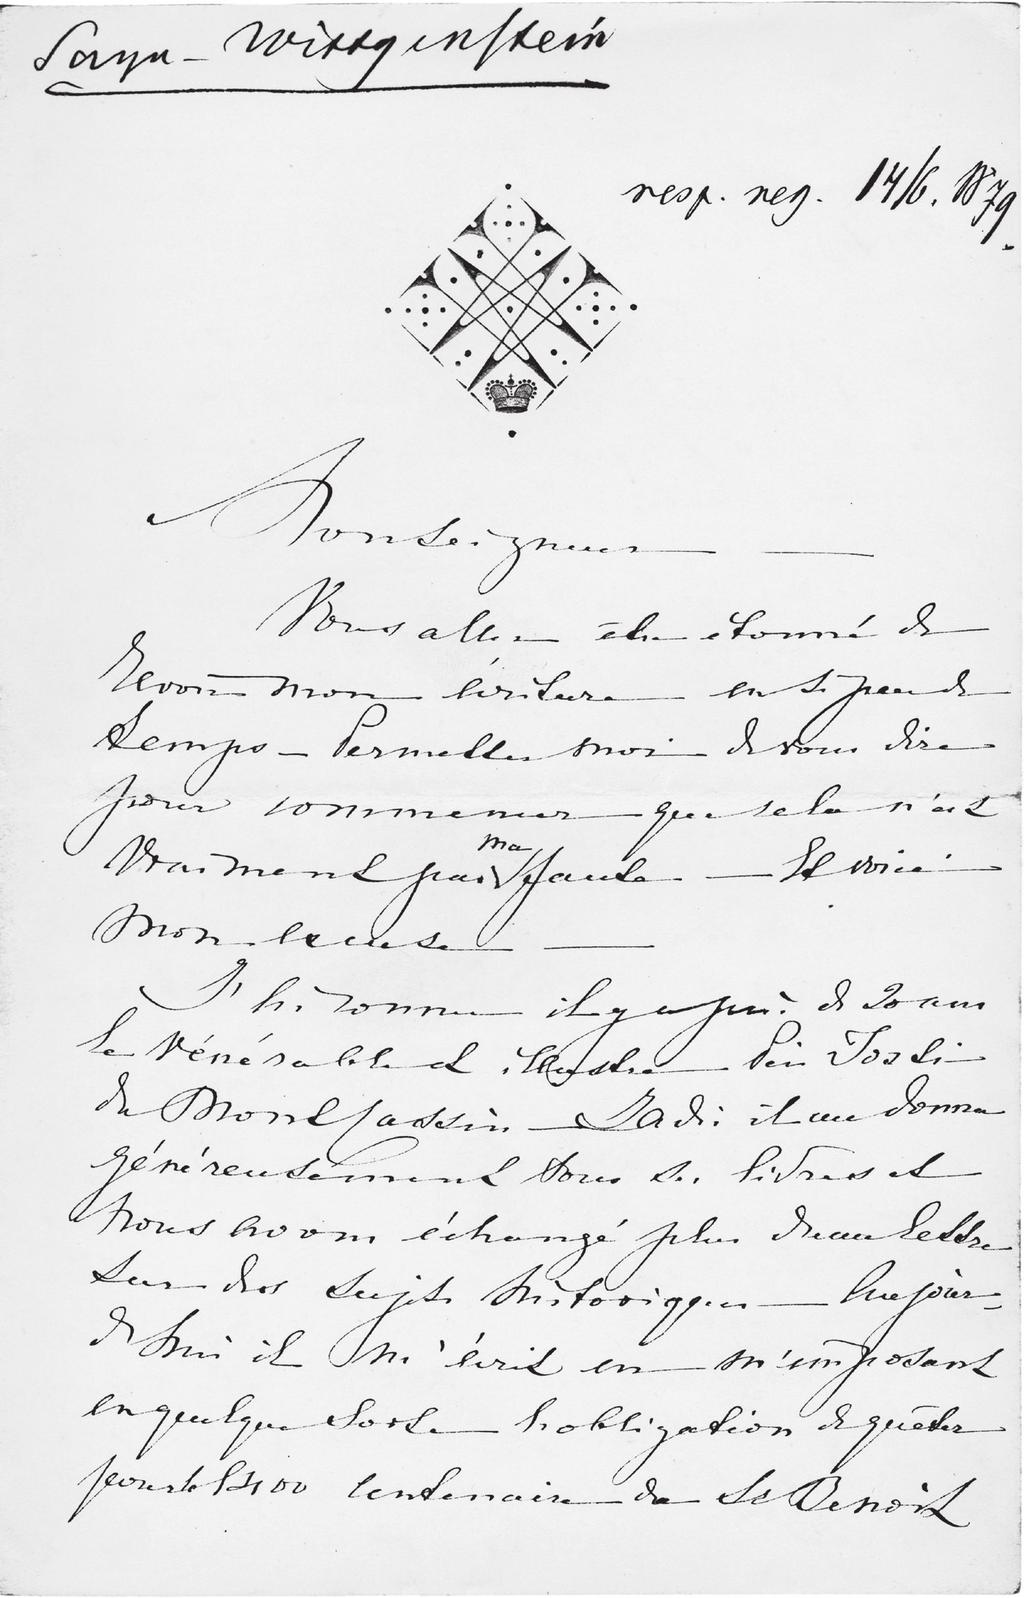 Sayn-Wittgenstein
resp. neg. 14/6. 1879.
Monseigneur —
Vous allez être étonné de
revoir mon écriture en si peu de
temps — Permettez moi de vous dire
pour commencer que cela n'est
vraiment pas ma faute — Et voici
mon excuse —
J'ai connu il y a près de 20 ans
le Vénérable et illustre Père Tosti
du Mont Cassin — Jadis il me donna
généreusement tous ses livres et
nous avons échangé plus d'une lettre
sur des sujets historiques — Aujour-
d'hui il m'écrit en m'imposant
en quelque sorte l'obligation de quêter
pour le 1400 centenaire de St Benoît